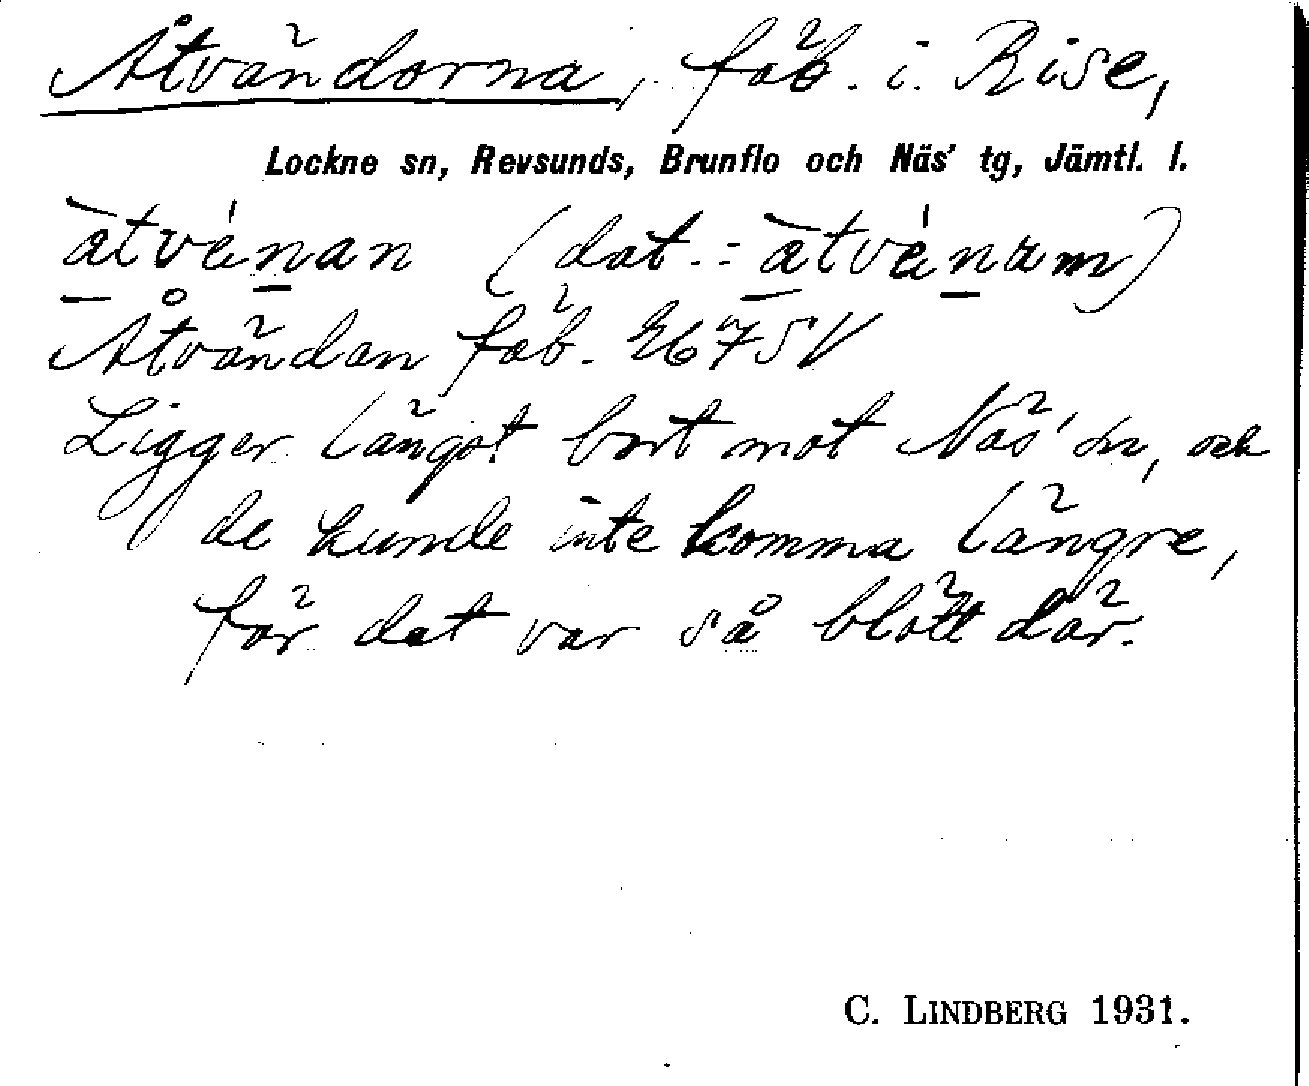 Åtvändorna, fäb. i Rise,
Lockne sn, Revsunds, Brunflo och Näs' tg, Jämtl. l.
àtvénan (dat. = àtvénam)
Åtvändan fäb. 2675V
Ligger längst bort mot Näs' sn, och
de kunde inte komma längre,
för det var så blött där.
C. LINDBERG 1931.